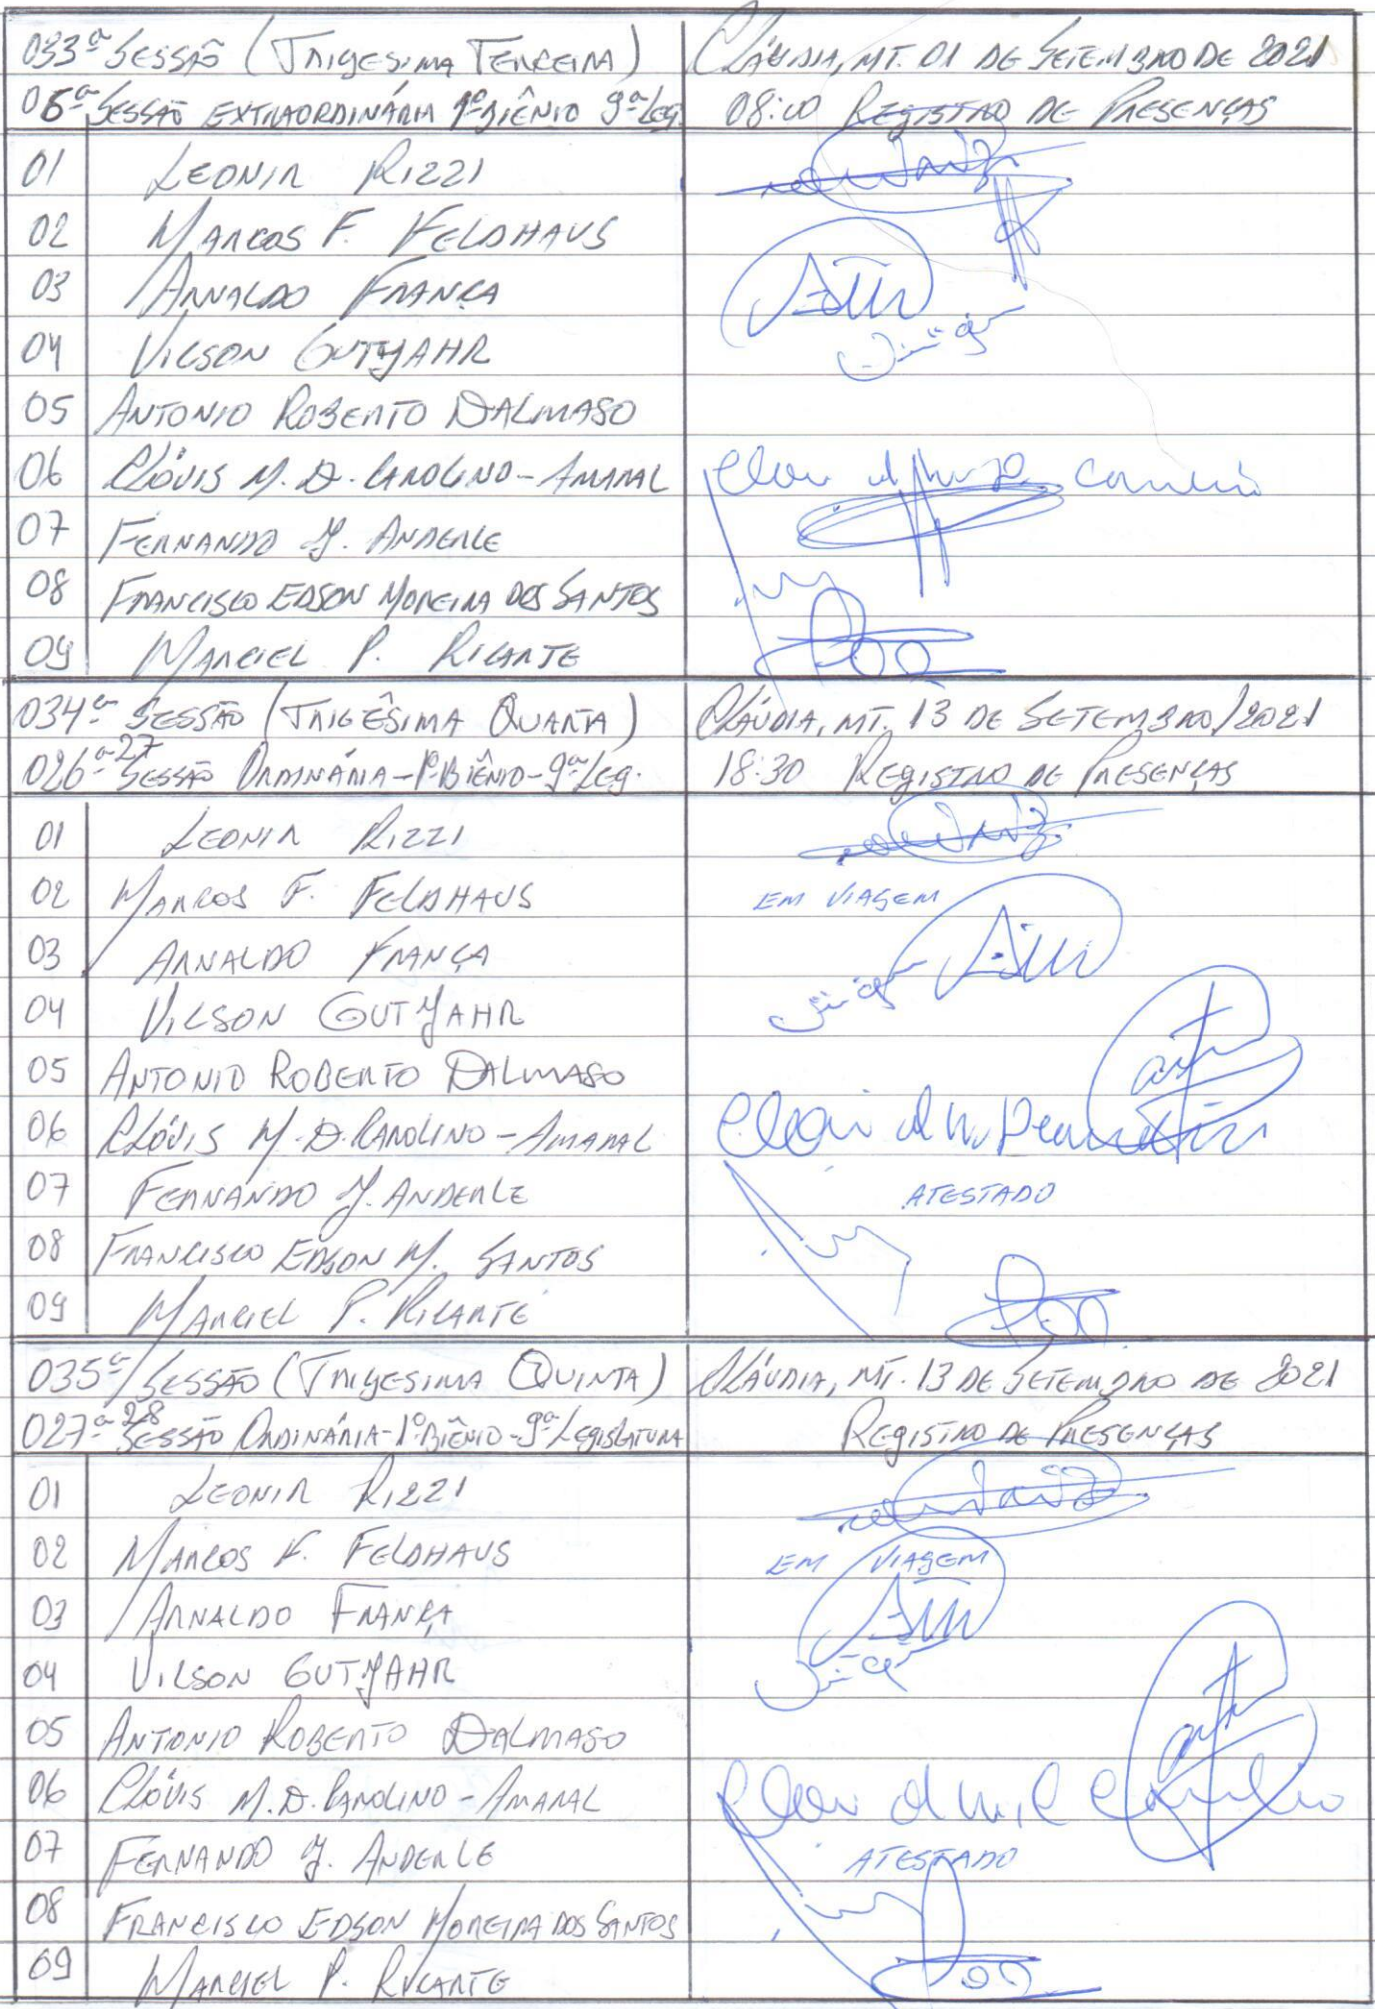 033ª SESSÃO (TRIGESIMA TERCEIRA) CLÁUDIA, MT. 01 DE SETEMBRO DE 2021
05ª SESSÃO EXTRAORDINÁRIA 1º BIÊNIO 9ª LEG. 08:00 REGISTRO DE PRESENÇAS
01 LEONIR RIZZI
02 MARCOS F. FELDHAUS
03 ARNALDO FRANÇA
04 VILSON GUTJAHR
05 ANTONIO ROBERTO DALMASO
06 CLÓVIS M. D. CAROLINO - AMARAL
07 FERNANDO J. ANDERLE
08 FRANCISCO EDSON MOREIRA DOS SANTOS
09 MARCIEL P. RICARTE
034ª SESSÃO (TRIGÊSIMA QUARTA) CLÁUDIA, MT. 13 DE SETEMBRO/2021
026ª 27 SESSÃO ORDINÁRIA - 1º BIÊNIO - 9ª LEG. 18:30 REGISTRO DE PRESENÇAS
01 LEONIR RIZZI
02 MARCOS F. FELDHAUS EM VIAGEM
03 ARNALDO FRANÇA
04 VILSON GUTJAHR
05 ANTONIO ROBERTO DALMASO
06 CLÓVIS M. D. CAROLINO - AMARAL
07 FERNANDO J. ANDERLE ATESTADO
08 FRANCISCO EDSON M. SANTOS
09 MARCIEL P. RICARTE
035ª SESSÃO (TRIGESIMA QUINTA) CLÁUDIA, MT. 13 DE SETEMBRO DE 2021
027ª 28 SESSÃO ORDINÁRIA - 1º BIÊNIO - 9ª LEGISLATURA REGISTRO DE PRESENÇAS
01 LEONIR RIZZI
02 MARCOS F. FELDHAUS EM VIAGEM
03 ARNALDO FRANÇA
04 VILSON GUTJAHR
05 ANTONIO ROBERTO DALMASO
06 CLÓVIS M. D. CAROLINO - AMARAL
07 FERNANDO J. ANDERLE ATESTADO
08 FRANCISCO EDSON MOREIRA DOS SANTOS
09 MARCIEL P. RICARTE